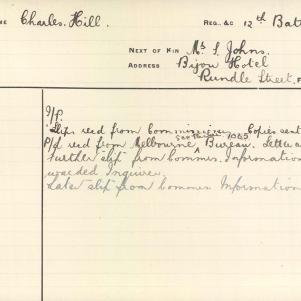 ME Charles. Hill. REG. &C 12th Batt
NEXT OF KIN Ms S. Johns.
ADDRESS Bijou Hotel
Rundle Street, P
I/P.
Slip recd from Commissioners Copies sent
P/d recd from Melbourne Bureau. Letter a
further slip from Commrs. Information
warded Inquirer.
Later slip from Commrs Information